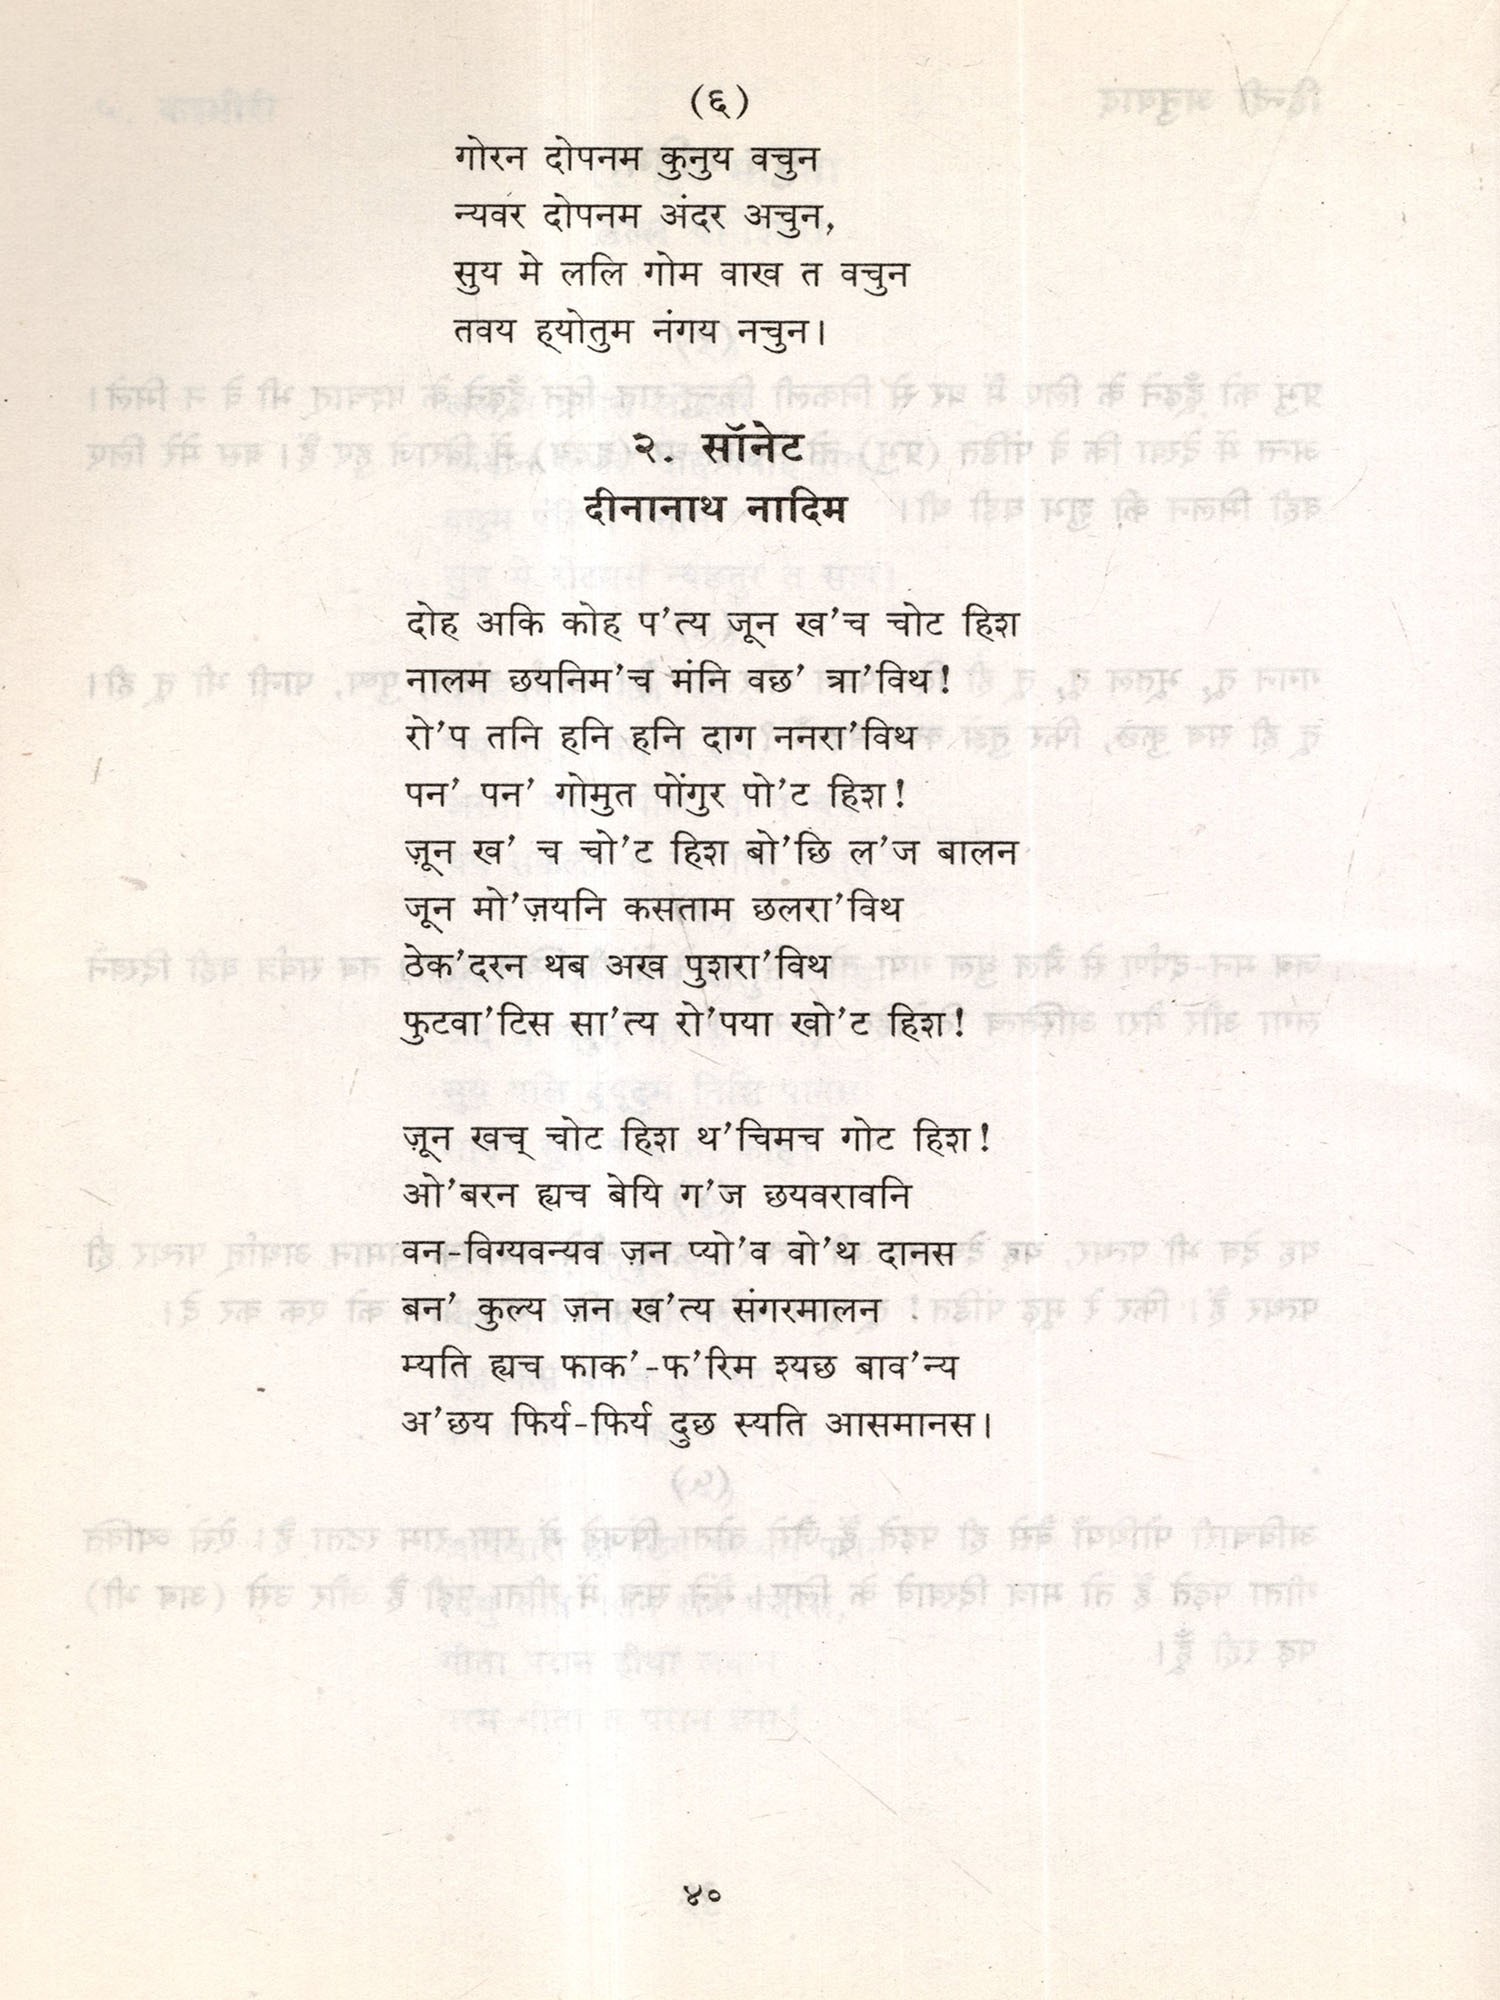 (६)
गोरन दोपनम कुनुय वचुन
न्यवर दोपनम अंदर अचुन,
सुय मे ललि गोम वाख त वचुन
तवय ह्योतुम नंगय नचुन।
२. सॉनेट
दीनानाथ नादिम
दोह अकि कोह प’त्य जून ख’च चोट हिश
नालम छयनिम’च मंनि वछ’ त्रा’विथ!
रो’प तनि हनि हनि दाग ननरा’विथ
पन’ पन’ गोमुत पोंगुर पो’ट हिश!
ज़ून ख’ च चो’ट हिश बो’छि ल’ज बालन
जून मो’ज़यनि कसताम छलरा’विथ
ठेक’दरन थब अख पुशरा’विथ
फुटवा’टिस सा’त्य रो’पया खो’ट हिश!
ज़ून खच् चोट हिश थ’चिमच गोट हिश!
ओ’बरन ह्यच बेयि ग’ज छयवरावनि
वन-विग्यवन्यव ज़न प्यो’व वो’थ दानस
बन’ कुल्य ज़न ख’त्य संगरमालन
म्यति ह्यच फाक’-फ’रिम श्यछ बाव’न्य
अ’छय फिर्य-फिर्य दुछ स्यति आसमानस।
४०